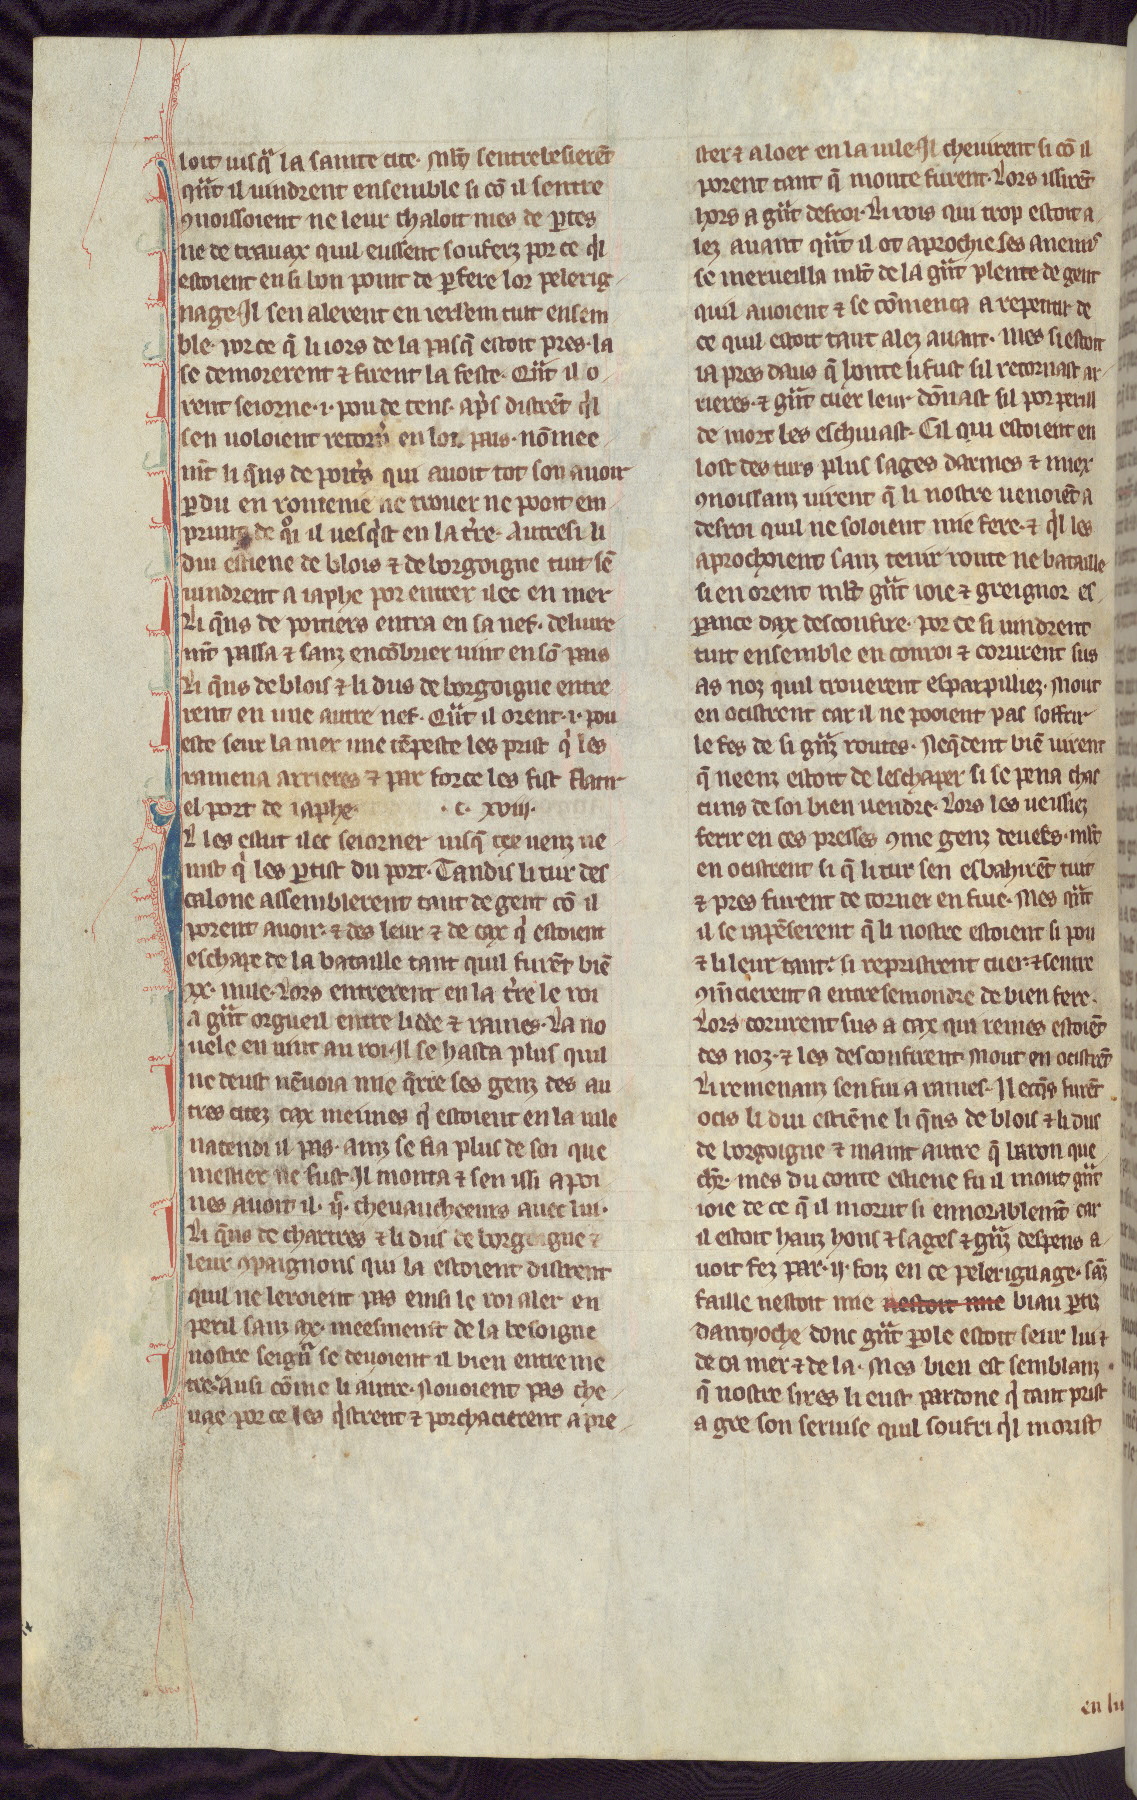 loit iusqͣ la sainte cite. Mlt̄ sentrebesierēt
qͣnt il uindrent ensemble si cō il sentre
ꝯnoissoient ne leur chaloit mes de ꝑtes
ne de trauax quil eussent souferz por ce qͥl
estoient en si bon point de ꝑfere lor pelerig
nage. Il sen alerent en ierl̄m tuit ensem
ble. por ce q̄ li iors de la pasq̄ estoit pres. la
se demorerent ⁊ firent la feste. Qͣnt il o
rent seiorne .i. pou de tens. apͤs distrēt qͥl
sen uoloient retorn̄ en lor pais. nōmee
mēt li qͥns de poitͥs qui auoit tot son auoir
ꝑdu en romenie ne trouer ne pooit em
prunz de qͦi il uesqͥst en la tͤre. Autresi li
dui estiene de blois ⁊ de borgoigne tuit sē
uindrent a iaphe por entrer ilec en mer
Li qͥns de poitiers entra en sa nef. deliure
mēt passa ⁊ sanz encōbrier uint en sō pais
Li qͥns de blois ⁊ li dus de borgoigne entre
rent en une autre nef. Qͣnt il orent .i. pou
este seur la mer une tēpeste les prist qͥ les
ramena arrieres ⁊ par force les fist flatir
el port de iaphe. .c. xviij.
Il les estut ilec seiorner iusq̄ tex uenz ue
nist qͥ les ꝑtist du port. Tandis li tur des
calone assemblerent tant de gent cō il
porent auoir. ⁊ des leur ⁊ de cax qͥ estoient
eschape de la bataille tant quil furēt biē
xx. mile. Lors entrerent en la tͤre le roi
a gͣnt orgueil entre lidde ⁊ rames. La no
uele en uint au roi. Il se hasta plus quil
ne deust nēuoia mie qͤrre ses genz des au
tres citez cax meimes qͥ estoient en la uile
natendi il pas. ainz se fia plus de soi que
mestier ne fust. Il monta ⁊ sen issi a poi
nes auoit il .ij.ͨ cheuaucheeurs auec lui.
Li qͥns de chartres ⁊ li dus de borgoigne ⁊
leur ꝯpaignons qui la estoient distrent
quil ne leroient pas einsi le roi aler en
peril sanz ax. meesmemēt de la besoigne
nostre seignͬ se deuoient il bien entreme
tre. ausi cōme li autre. Nouoient pas che
uax por ce les qͥstrent ⁊ porchacierent a pre
ster ⁊ a loer en la uile. Il cheuirent si cō il
porent tant q̄ monte furent. Lors issirēt
hors a gͣnt desroi. Li rois qui trop estoit a
lez auant qͣnt il ot aprochie ses anemis
se merueilla mlt̄ de la gͣnt plente de gent
quil auoient ⁊ se cōmenca a repentir de
ce quil estoit tant alez auant. Mes si estoit
ia pres daus q̄ honte li fust sil retornast ar
rieres. ⁊ gͣnt cuer leur dōnast sil por perill
de mort les eschiuast. Cil qui estoient en
lost des turs plus sages darmes ⁊ miex
ꝯnoissanz uirent q̄ li nostre uenoiēt a
desroi quil ne soloient mie fere. ⁊ qͥl les
aprochoient sanz tenir route ne bataille
si en orent mlt̄ gͣnt ioie ⁊ greignor es
ꝑance dax desconfire. por ce si uindrent
tuit ensemble en conroi ⁊ corurent sus
as noz quil trouerent esparpilliez. Mout
en ocistrent car il ne pooient pas soffrir
le fes de si gͣnz routes. Neqͥdent biē uirent
q̄ neenz estoit de leschaper si se pena chas
cuns de soi bien uendre. Lors les ueissiez
ferir en ces presses ꝯme genz deuees. mlt̄
en ocistrent si q̄ li tur sen esbahirēt tuit
⁊ pres furent de torner en fuie. Mes qͣnt
il se rapēserent q̄ li nostre estoient si pou
⁊ li leur tant. si repristrent cuer. ⁊ sentre
ꝯmēcierent a entresemondre de bien fere.
Lors corurent sus a cax qui remes estoiēt
des noz. ⁊ les desconfirent. Mout en ocistrēt
Li remenanz sen fui a rames. Ilecqͥs furēt
ocis li dui estiēne li qͥns de blois ⁊ li dus
de borgoigne ⁊ maint autre q̄ baron que
chͬ. mes du conte estiene fu il mout gͣnt
ioie de ce q̄ il morut si ennorablemēt car
il estoit hauz hons ⁊ sages ⁊ gͣnz despens a
uoit fez par .ij. foiz en ce peleriguage. sāz
faille nestoit mie nestoit mie biau ꝑtiz
dantyoche donc gͣnt ꝑole estoit seur lui ⁊
de ca mer ⁊ de la. Mes bien est semblanz
q̄ nostre sires li eust pardone qͥ tant prist
a gre son seruise quil soufri qͥl morist
en lu